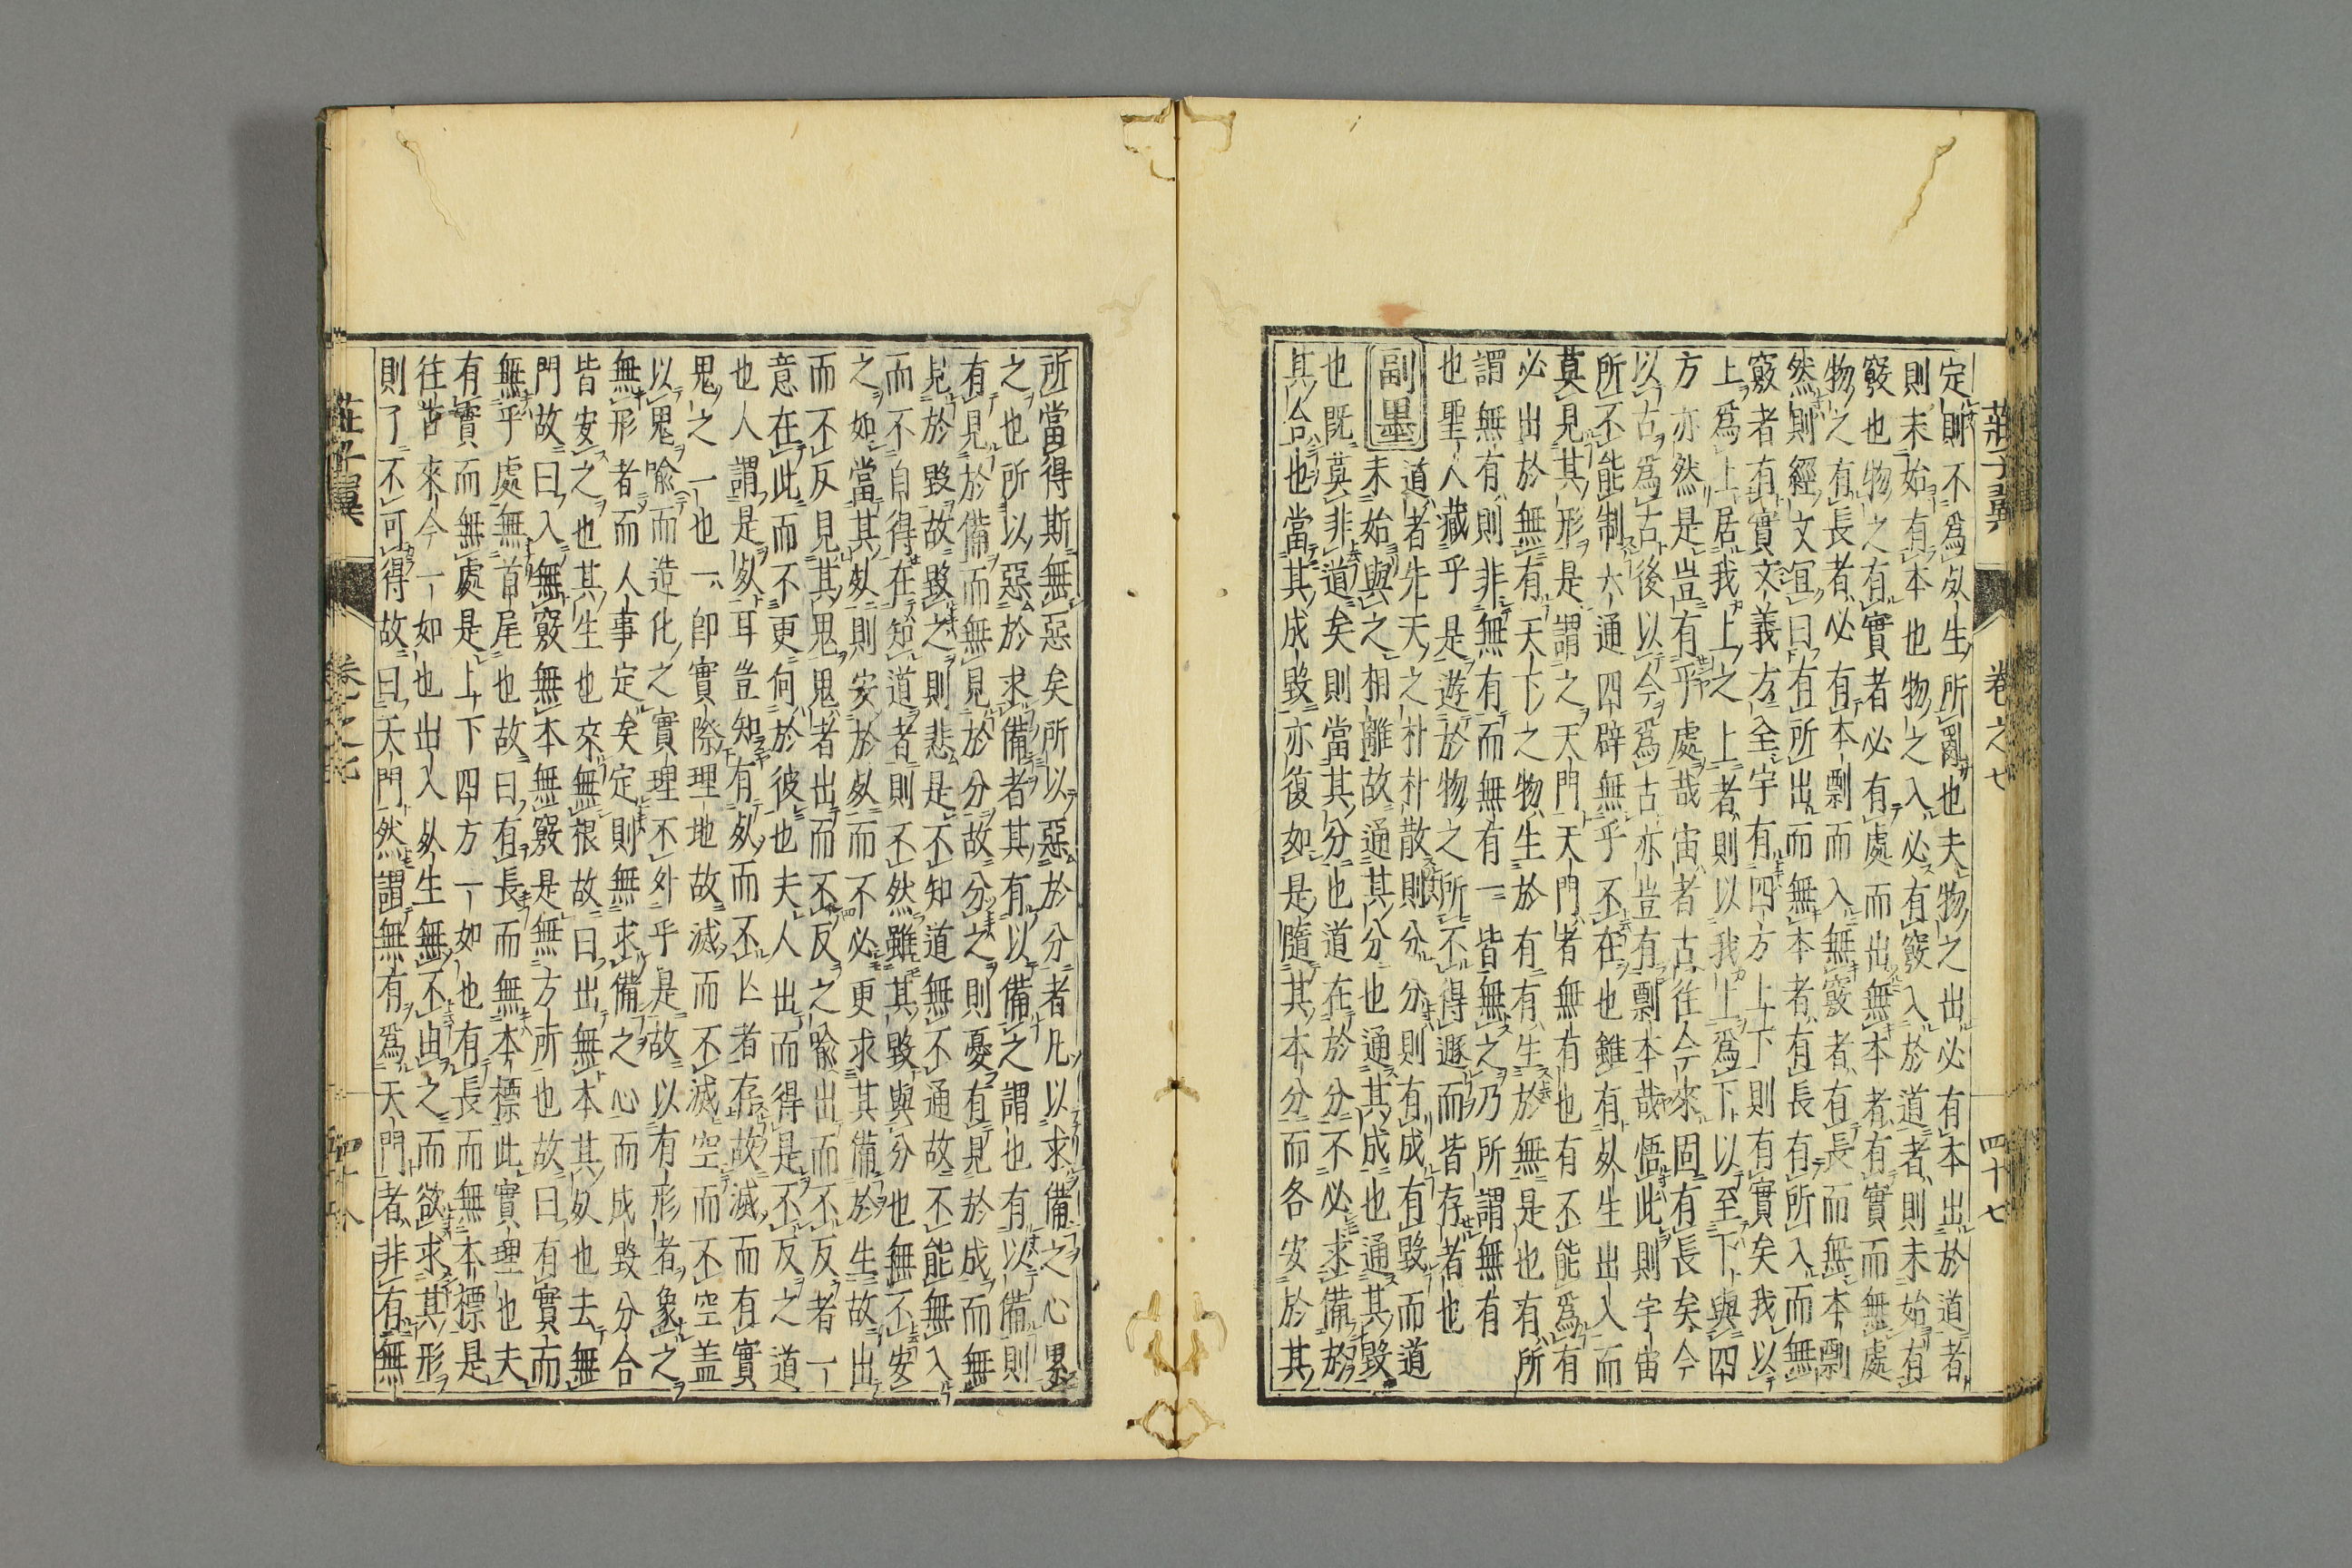 莊子翼 卷之七 四十七
定則不爲死生所亂也夫物之出必有本出於道者
則未始有本也物之入必有竅入於道者則未始有
竅也物之有實者必有處而出無本者有實而無處
物之有長者必有本剽而入無竅者有長而無本剽
然則經文宜曰有所出而無本者有長有所入而無
竅者有實文義方全宇有四方上下則有實矣我以
上爲上居我上之上者則以我上爲下以至下與四
方亦然是豈有乎處哉宙者古往今來固有長矣今
以古爲古後以今爲古亦豈有剽本哉悟此則宇宙
所不能制六通四辟無乎不在也雖有死生出入而
莫見其形是謂之天門天門者無有也有不能爲有
必出於無有天下之物生於有有生於無是也有所
謂無有則非無有而無有一皆無之乃所謂無有
也聖人藏乎是遊於物之所不得遯而皆存者也
副墨 道者先天之朴朴散則分分則有成有毀而道
未始與之相離故通其分也通其成也通其毀
也既莫非道矣則當其分也道在於分不必求備於
其合也當其成毀亦復如是隨其本分而各安於其
所當得斯無惡矣所以惡於分者凡以求備之心累
之也所以惡於求備者其有以備之謂也有以備則
有見於備而無見於分故分之則憂有見於成而無
見於毀故毀之則悲是不知道無不通故不能無入
而不自得在知道者則不然雖其毀與分也無不安
之如當其死則安於死而不必更求其備於生故出
而不反見其鬼鬼者出而不反之喩出而不反者一
意在此而不更向於彼也夫人出而得是不反之道
也人謂是死耳豈知有死而不亡者存故滅而有實
鬼之一也一卽實際理地故滅而不滅空而不空盖
以鬼喩而造化之實理不外乎是故以有形者象之
無形者而人事定矣定則無求備之心而成毀分合
皆安之也其生也來無根故曰出無本其死也去無
門故曰入無竅無本無竅是無方所也故曰有實而
無乎處無首尾也故曰有長而無本標此實理也夫
有實而無處是上下四方一如也有長而無本標是
往古來今一如也出入死生無不由之而欲求其形
則了不可得故曰天門然謂無有爲天門者非有無
莊子翼 卷之七 四十八